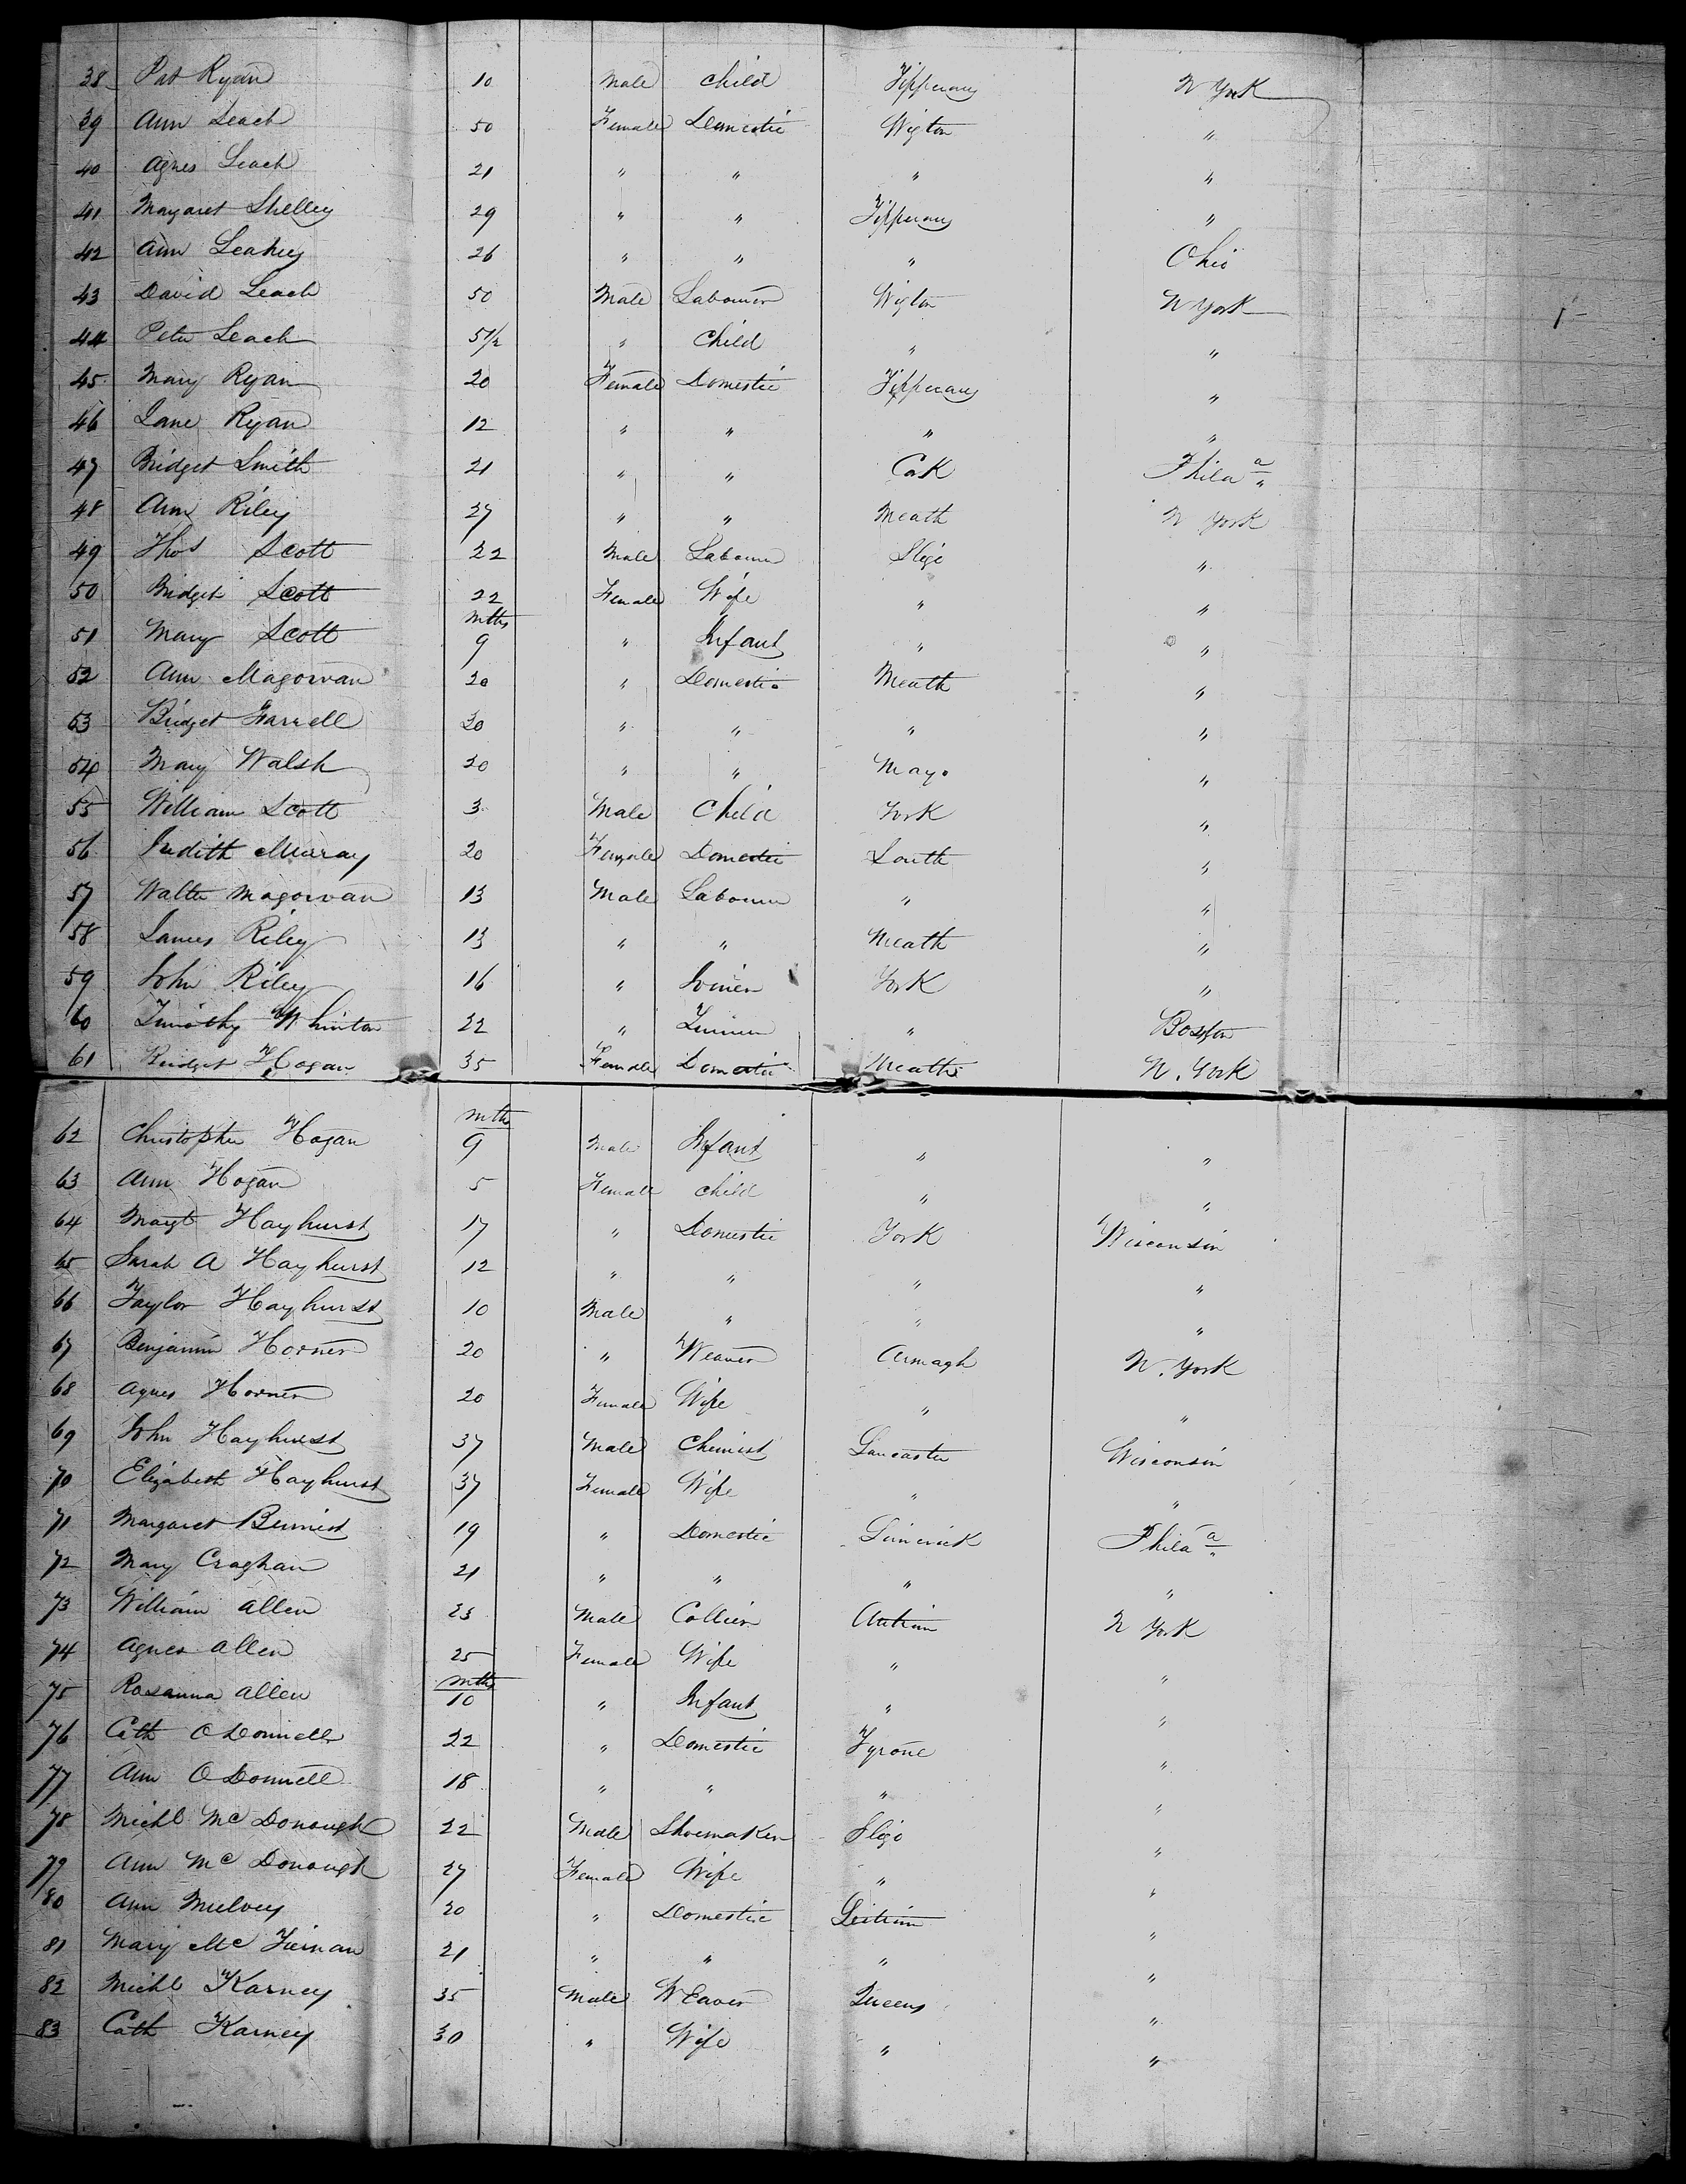 38 Pat Ryan 10 Male Child Tipperary N York
39 Ann Leach 50 Female Domestic Wigton "
40 Agnes Leach 21 " " " "
41 Margaret Shelley 29 " " Tipperary "
42 Ann Leahey 26 " " " Ohio
43 David Leach 50 Male Labourer Wigton N York
44 Peter Leach 5 1/2 " Child " "
45 Mary Ryan 20 Female Domestic Tipperary "
46 Jane Ryan 12 " " " "
47 Bridget Smith 21 " " Cork Phila a
48 Ann Riley 27 " " Meath N York
49 Thos Scott 22 Male Labourer Sligo "
50 Bridget Scott 22 Female Wife " "
mths
51 Mary Scott 9 " Infant " "
52 Ann Magowan 20 " Domestic Meath "
53 Bridget Farrell 30 " " " "
54 Mary Walsh 20 " " Mayo "
55 William Scott 3 Male Child York "
56 Judith Murray 20 Female Domestic Louth "
57 Walter Magowan 13 Male Labourer " "
58 James Riley 13 " " Meath "
59 John Riley 16 " Joiner York "
60 Timothy 22 " " Boston
61 Bridget Hogan 35 Female Domestic Meath N. York
mths
62 Christopher Hogan 9 Male Infant " "
63 Ann Hogan 5 Female Child " "
64 Magt Hayhurst 17 " Domestic York Wisconsin
65 Sarah A Hayhurst 12 " " " "
66 Taylor Hayhurst 10 Male " " "
67 Benjamin Horner 20 " Weaver Armagh N. York
68 Agnes Horner 20 Female Wife " "
69 John Hayhurst 37 Male Chemist Lancaster Wisconsin
70 Elizabeth Hayhurst 37 Female Wife " "
71 Margaret 19 " Domestic Limerick Phila a
72 Mary Craghan 21 " " " "
73 William Allen 23 Male Collier Antrim N York
74 Agnes Allen 25 Female Wife " "
mths
75 Rosanna Allen 10 " Infant " "
76 Cath O Donnell 22 " Domestic Tyrone "
77 Ann O Donnell 18 " " " "
78 Michl Mc Donough 22 Male Shoemaker Sligo "
79 Ann Mc Donough 27 Female Wife " "
80 Ann Mulvey 20 " Domestic Leitrim "
81 Mary Mc Tiernan 21 " " " "
82 Michl Karney 35 Male Weaver Queens "
83 Cath Karney 30 " Wife " "